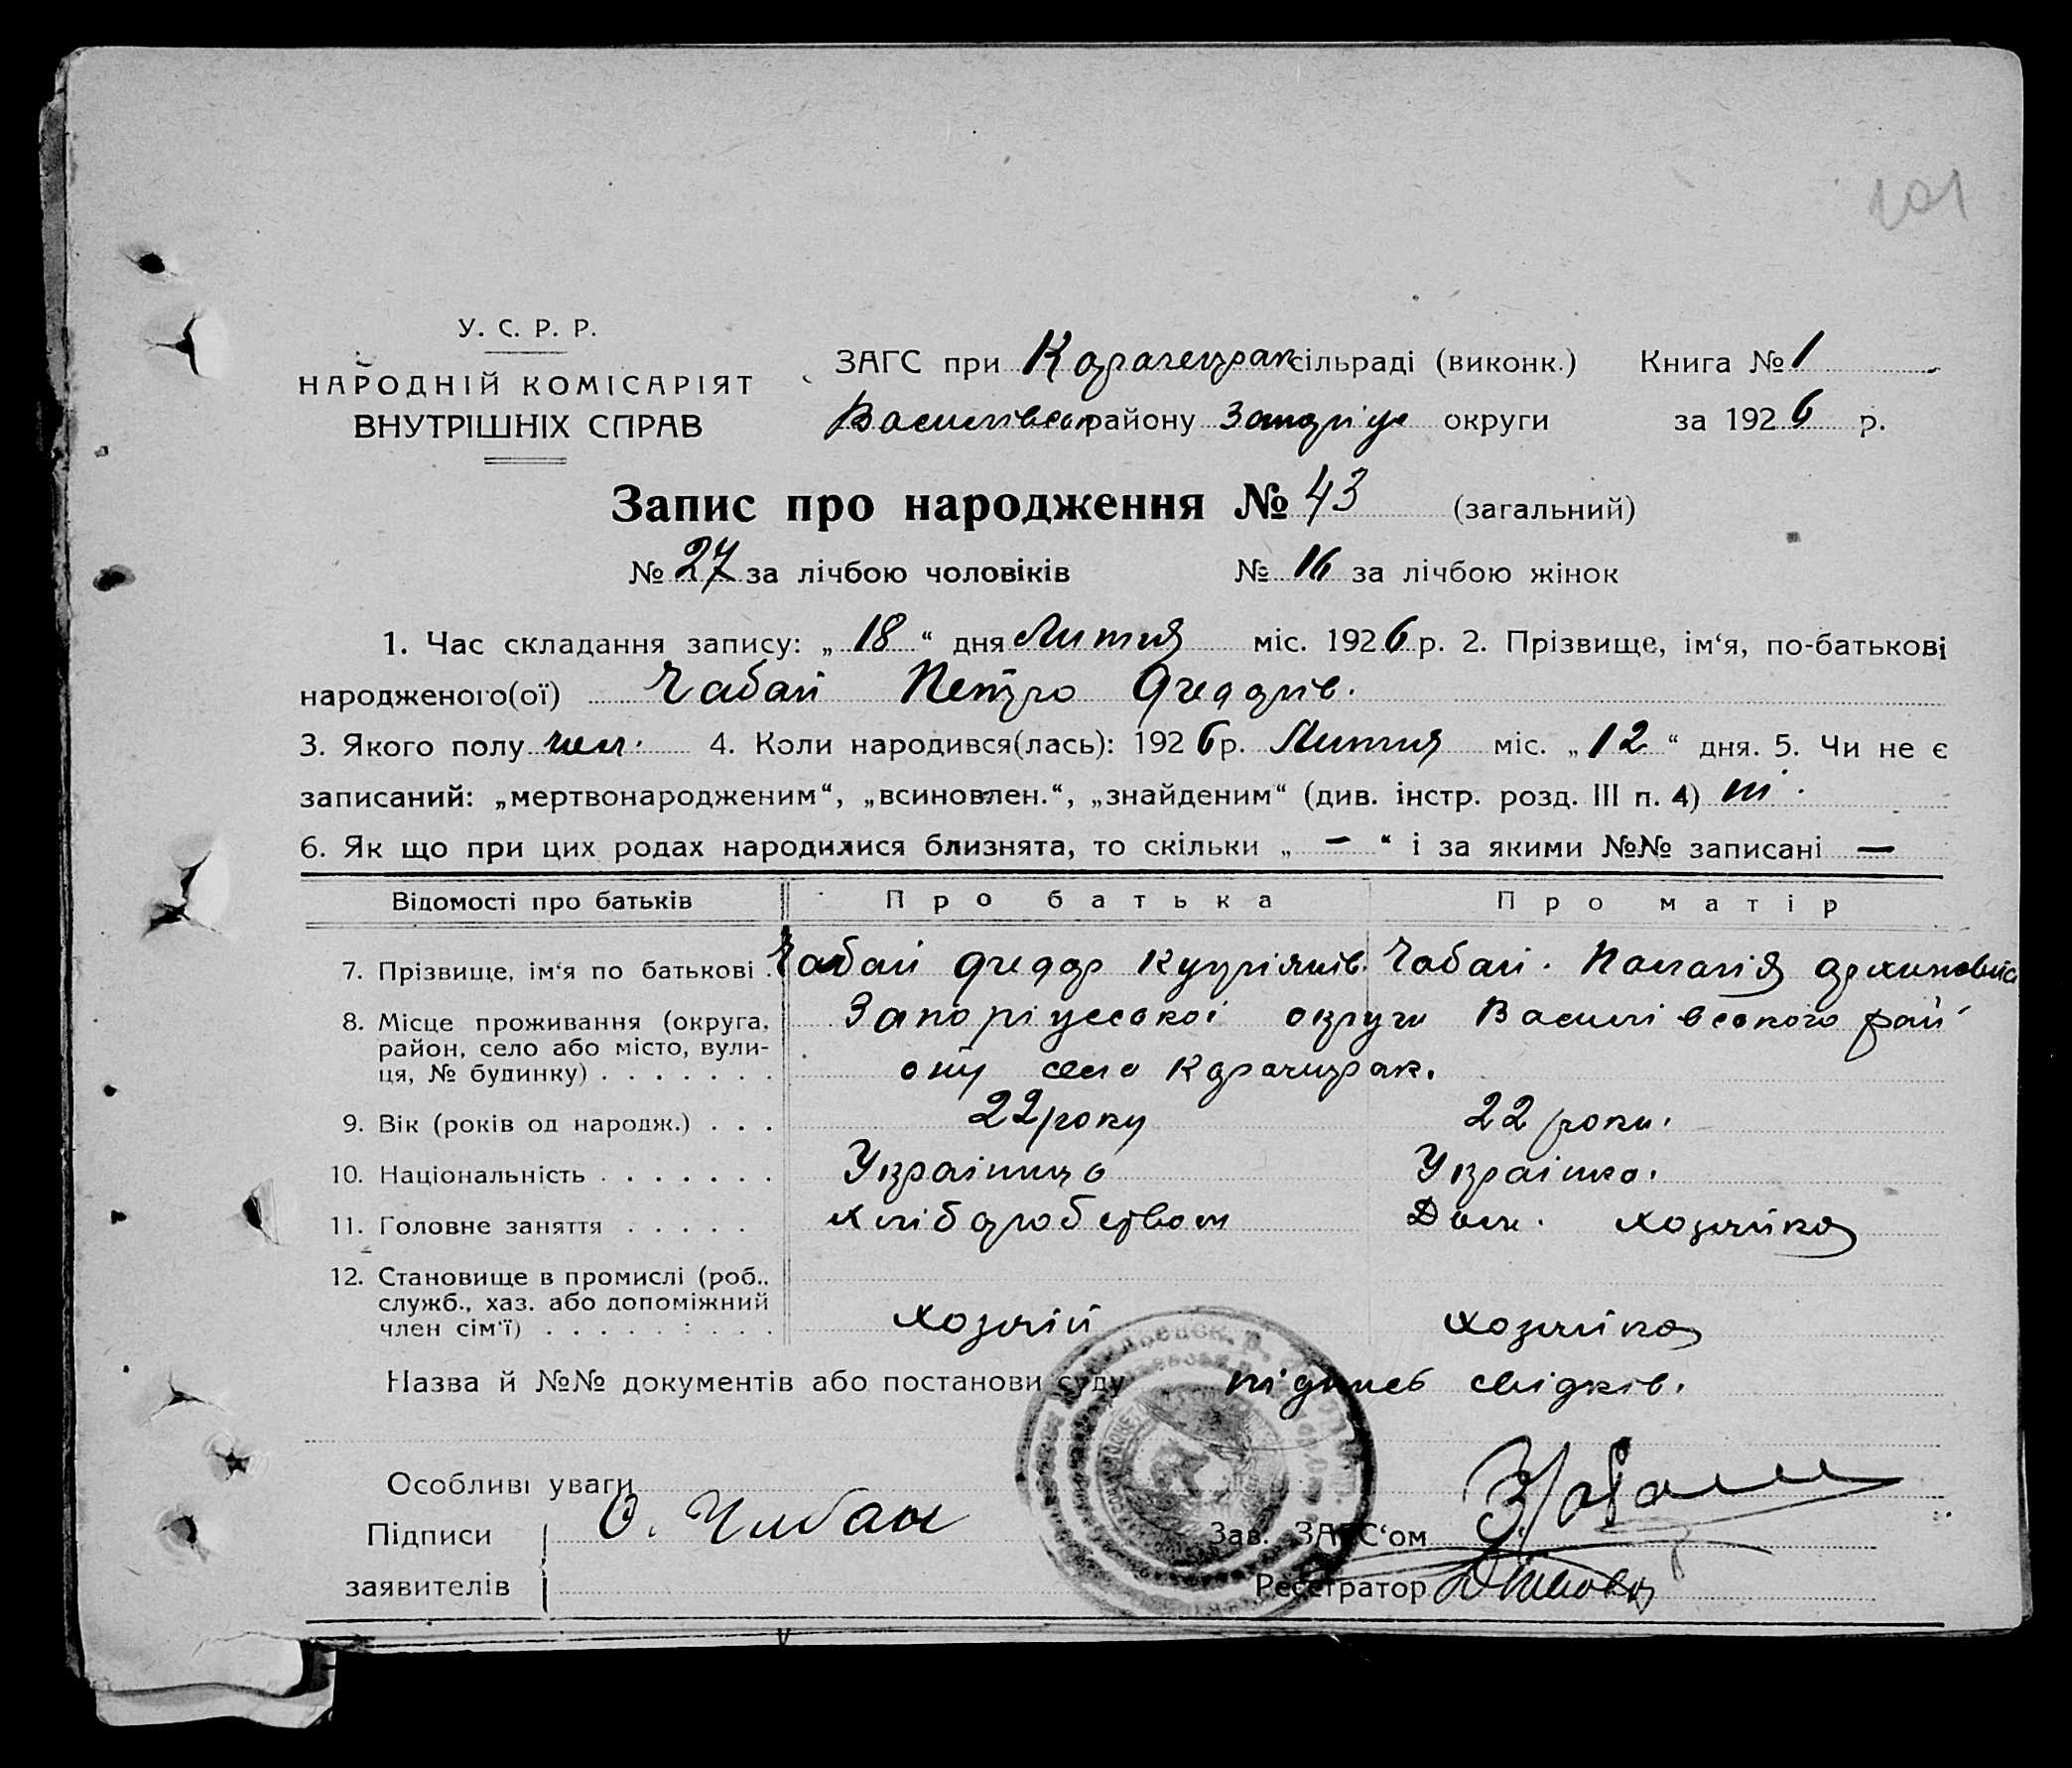 101
У. С. Р. Р.
НАРОДНІЙ КОМІСАРІЯТ
ВНУТРІШНІХ СПРАВ
ЗАГС при Карачекрак сільраді (виконк.) Книга № 1
Василівськ району Запоріцк округи за 1926 р.
Запис про народження № 43 (загальний)
№ 27 за лічбою чоловіків № 16 за лічбою жінок
1. Час складання запису: „ 18 “ дня Лютня міс. 1926 р. 2. Прізвище, ім‘я, по-батькові
народженого(ої) Чабан Петро Федорів.
3. Якого полу чол. 4. Коли народився(лась): 1926 р. Лютня міс. „ 12 “ дня. 5. Чи не є
записаний: „мертвонародженим“, „всиновлен.“, „знайденим“ (див. інстр. розд. III п. 4) ні.
6. Як що при цих родах народилися близнята, то скільки „ — “ і за якими №№ записані —
Відомості про батьків Про батька Про матір
7. Прізвище, ім‘я по батькові Чабан Федор Купріянів. Чабан. Палагія Архиповна
8. Місце проживання (округа, Запоріцської округи Василівського рай
район, село або місто, вули- ону село Карачикрак.
ця, № будинку)
9. Вік (років од народж.) 22 року 22 роки.
10. Національність Українць Українка.
11. Головне заняття хліборобством Дом. хозяйка
12. Становище в промислі (роб.,
служб., хаз. або допоміжний
член сім‘ї) хозяїн хозяйка
Назва й №№ документів або постанови суду підпись свідків.
Особливі уваги
Підписи О. Чабан Зав. ЗАГС‘ом
заявителів Реєстратор